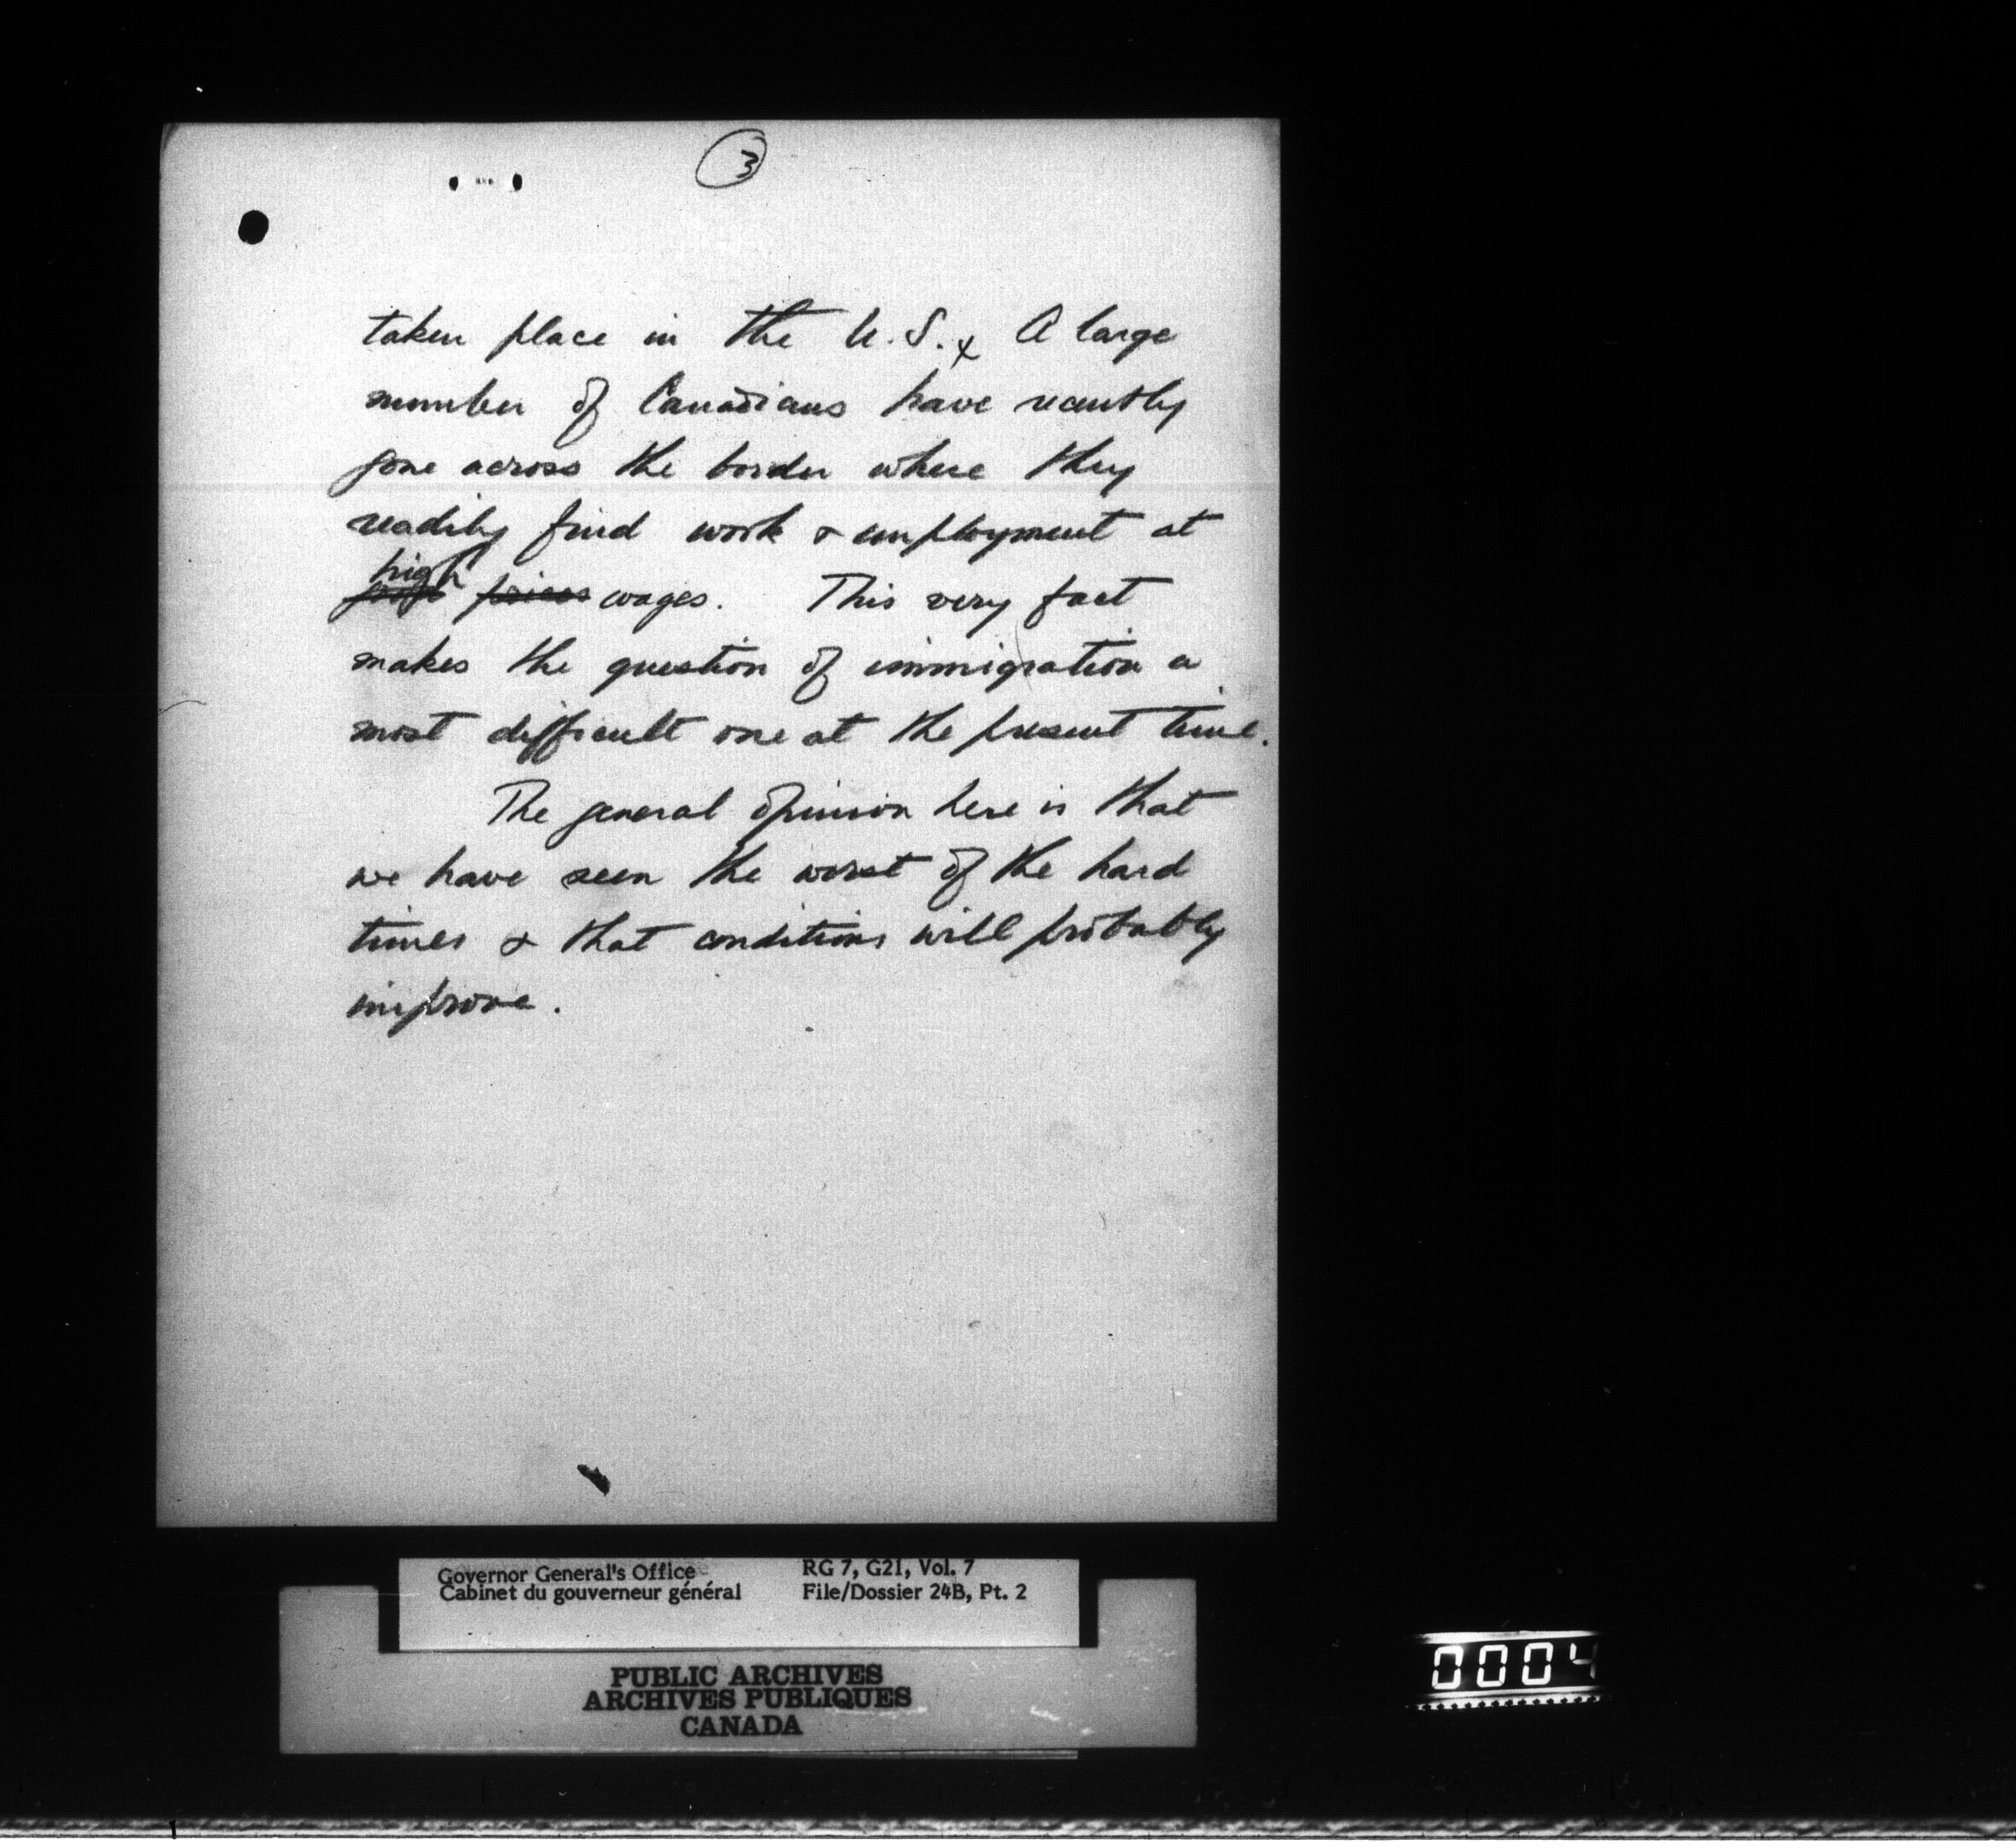 3
taken place in the U.S.x A large
number of Canadians have recently
gone across the border where they
readily find work & employment at
high
prices wages. This very fact
makes the question of immigration a
most difficult one at the present time.
The general opinion here is that
we have seen the worst of the hard
times & that conditions will probably
improve.
Governor General's Office
Cabinet du gouverneur général
RG 7, G21, Vol. 7
File/Dossier 24B, Pt. 2
PUBLIC ARCHIVES
ARCHIVES PUBLIQUES
CANADA
0004